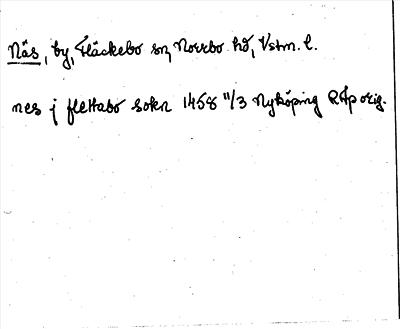 Näs, by, Fläckebo sn, Norrbo hd, Vstm. l.
nes j flettabo sokn 1458 11/3 Nyköping RAp orig.